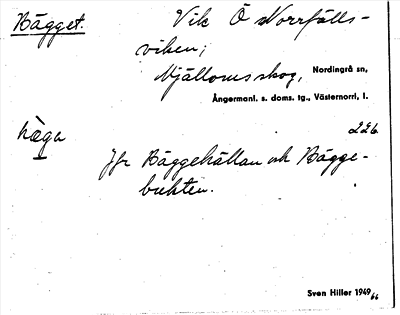 Bägget.
Vik Ö Norrfälls-
viken;
Mjälloms skog, Nordingrå sn,
Ångermanl. s. doms. tg., Västernorrl. l.
226
Jfr Bäggehällan och Bägge-
bukten.
Sven Hiller 1949